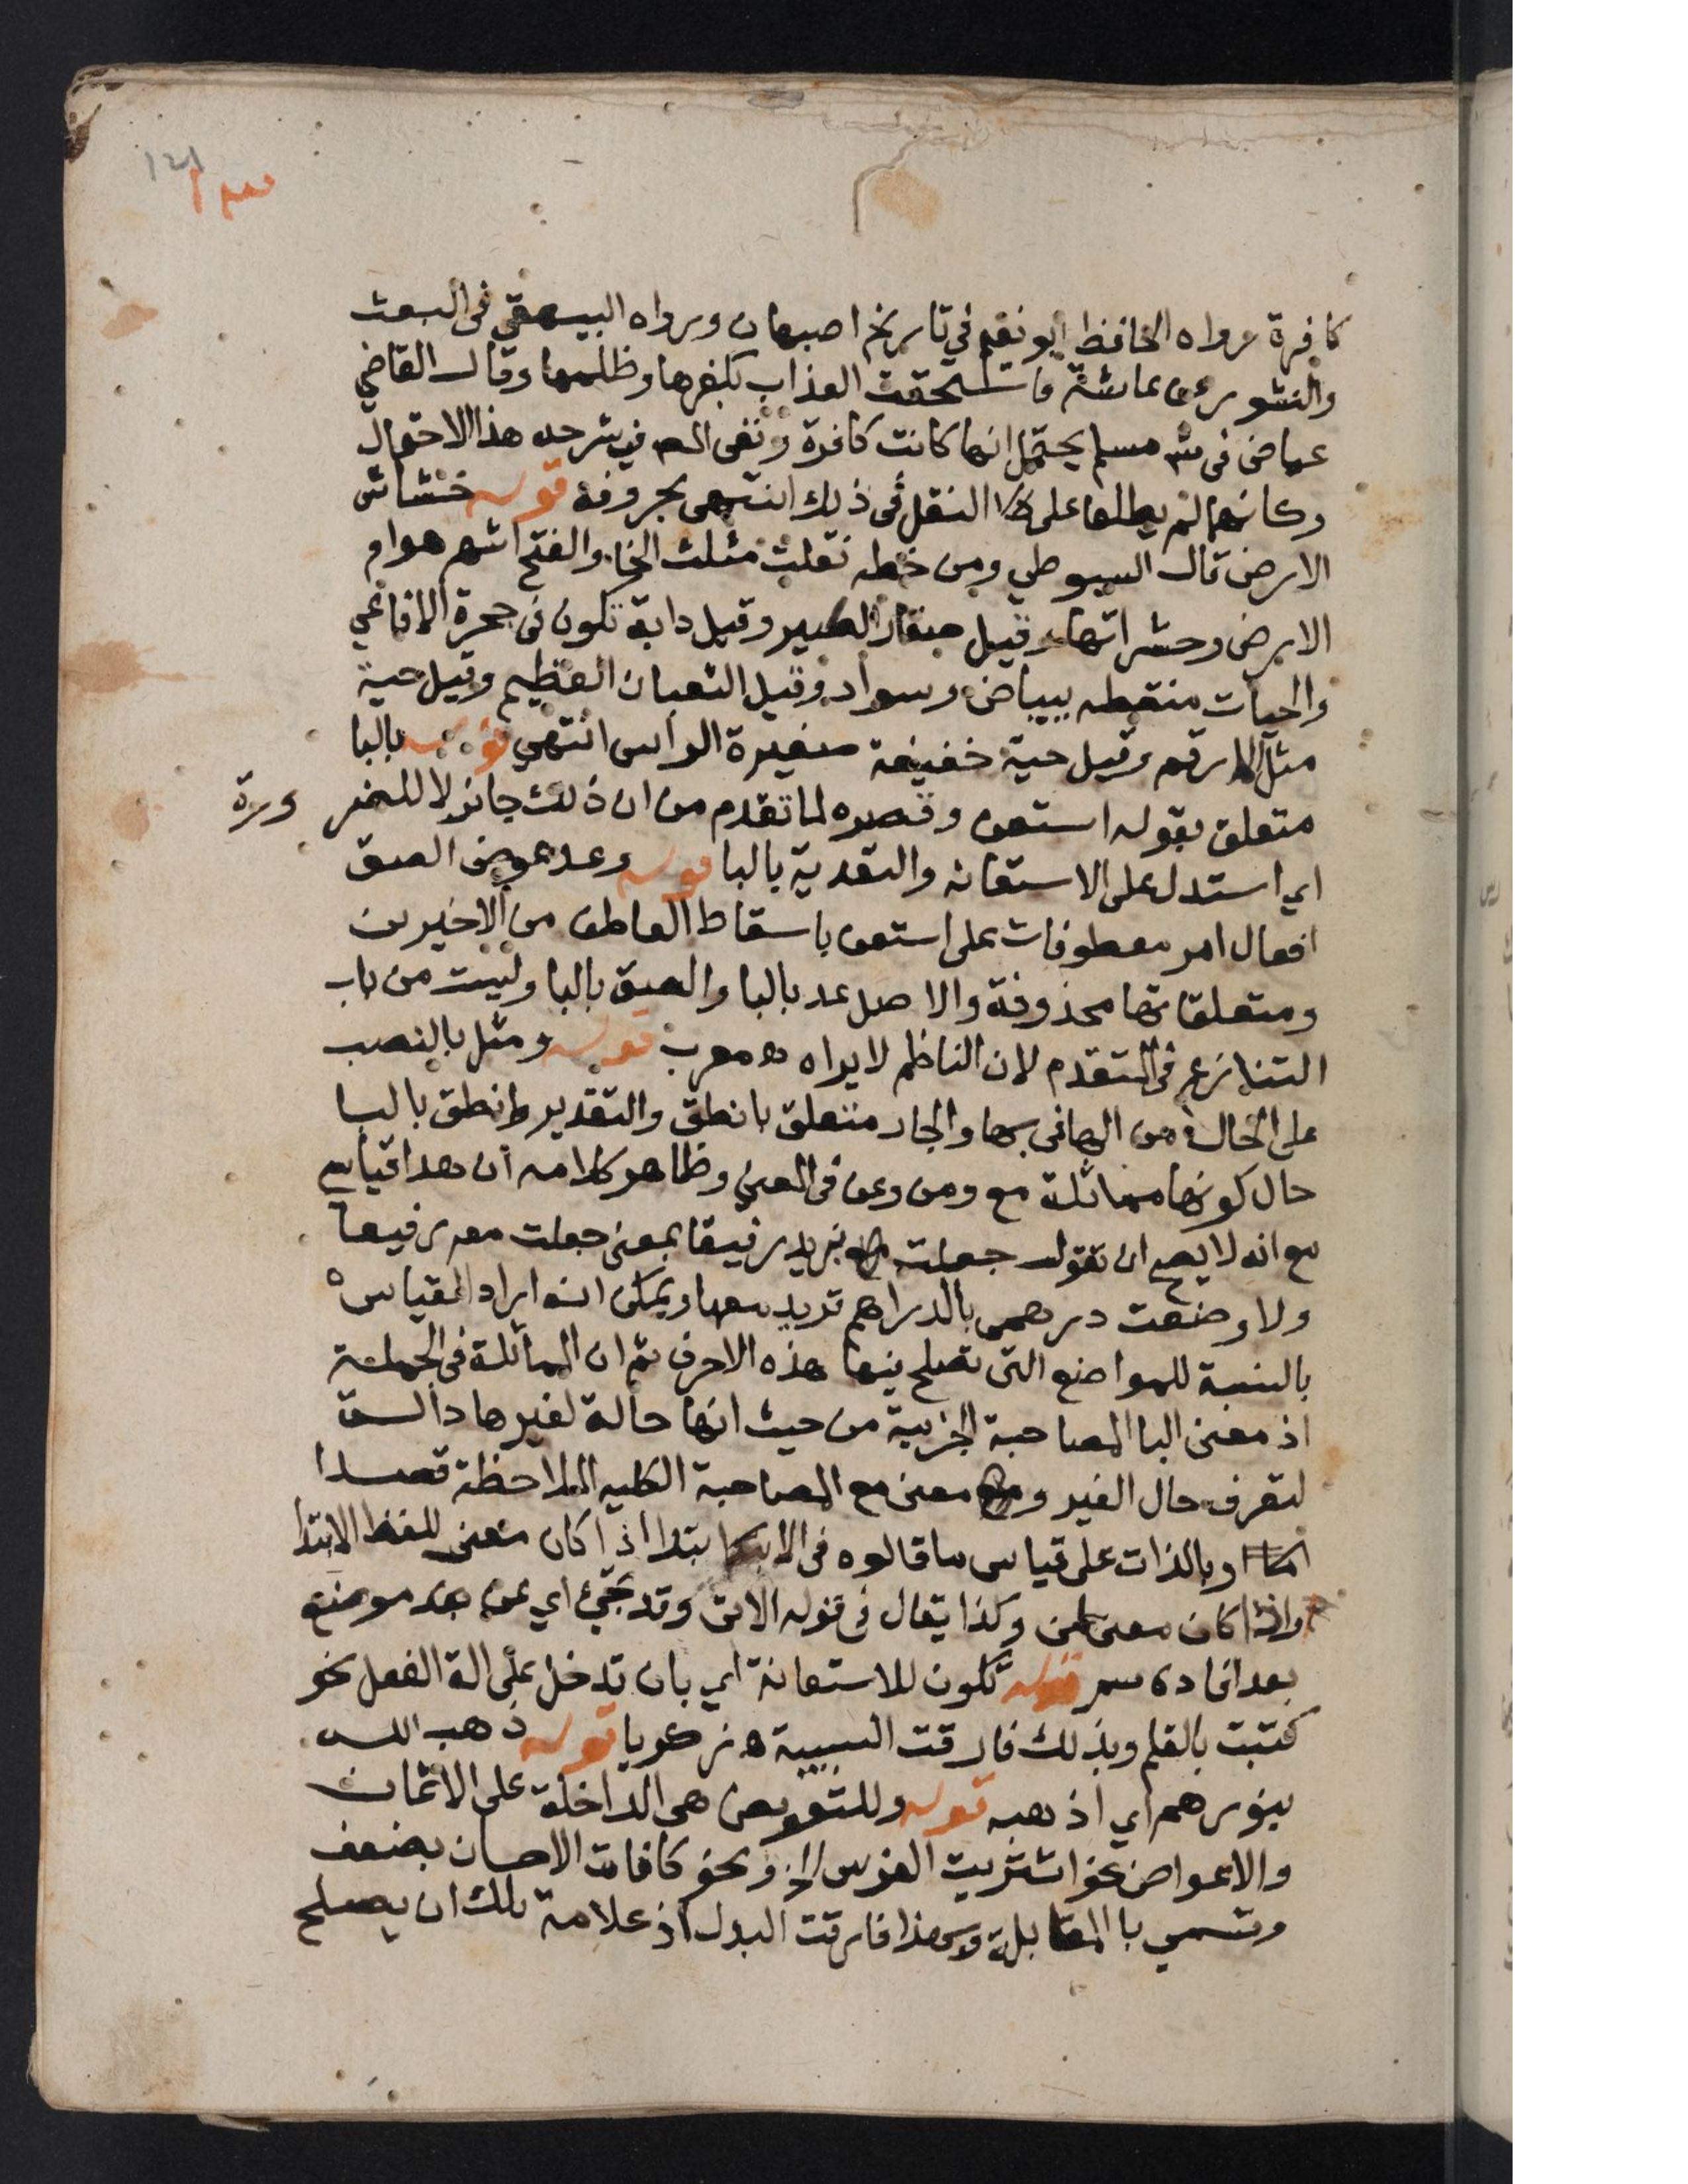 ١٤١
كافرة رواه الحافظ ابو نعيم في تاريخ اصبهان ورواه البيهقي في البعث
والنشور عن عائشة فاستحقت العذاب بكفرها وظلمها وقال القاضي
عياض في شـ مسلم يحتمل انها كانت كافرة ونفى النـ في شرحه هذا الاحتمال
وكانهما لم يطلعا على النقل في ذلك انتهى بحروفه قوله خشاش
الارض قال السيوطي ومن خطه نقلت مثلث الخا والفتح اشهر هوام
الارض وحشراتها وقيل صغار الطير وقيل دابة تكون في جحرة الافاعي
والحيات منقطه ببياض وسواد وقيل الثعبان العظيم وقيل حية
مثل الارقم وقيل حية خفيفة صغيرة الراس انتهى قوله بالبا
متعلق بقوله استعن وقصره لما تقدم من ان ذلك جائز لا للضرورة
اي استدل على الاستعانه والتعدية بالبا قوله وعد عوض الصق
افعال امر معطوفات على استعن باسقاط العاطف من الاخيرين
ومتعلقاتها محذوفة والاصل عد بالبا والصق بالبا وليست من باب
التنازع في المتقدم لان الناظم لا يراه اه معرب قوله ومثل بالنصب
على الحال من الها في بها والجار متعلق بانطق والتقدير وانطق بالبا
حال كونها مماثلة مع ومن وعن في المعنى وظاهر كلامه ان هذا قياسي
مع انه لا يصح ان تقول جعلت بزيد رفيقا بمعنى جعلت معه رفيقا
ولا وضعت درهمي بالدراهم تريد معها ويمكن انه اراد القياس
بالنسبة للمواضع التي تصلح فيها هذه الاحرف ثم ان المماثلة في الجملة
اذ معنى البا المصاحبة الجزيية من حيث انها حالة لغيرها والـة
لتعرف حال الغير ومعنى مع المصاحبة الكليه الملاحظة قصدا
وبالذات على قياس ما قالوه في الابتدا اذا كان معنى للفظ الابتدا
واذا كان معنى لمن وكذا يقال في قوله الاتي وقد تجيء اي عن بعد موضع
بعد افاده سم قوله تكون للاستعانة اي بان تدخل على الة الفعل نحو
كتبت بالقلم وبذلك فارقت السببية اه زكريا قوله ذهب الله
بنورهم اي اذهبه قوله وللتعويض هي الداخلة على الاثمان
والاعواض نحو اشتريت الفرس الخ ونحو كافات الاحسان بضعف
وتسمى با المقابلة وبهذا فارقت البدل اذ علامة تلك ان يصلح